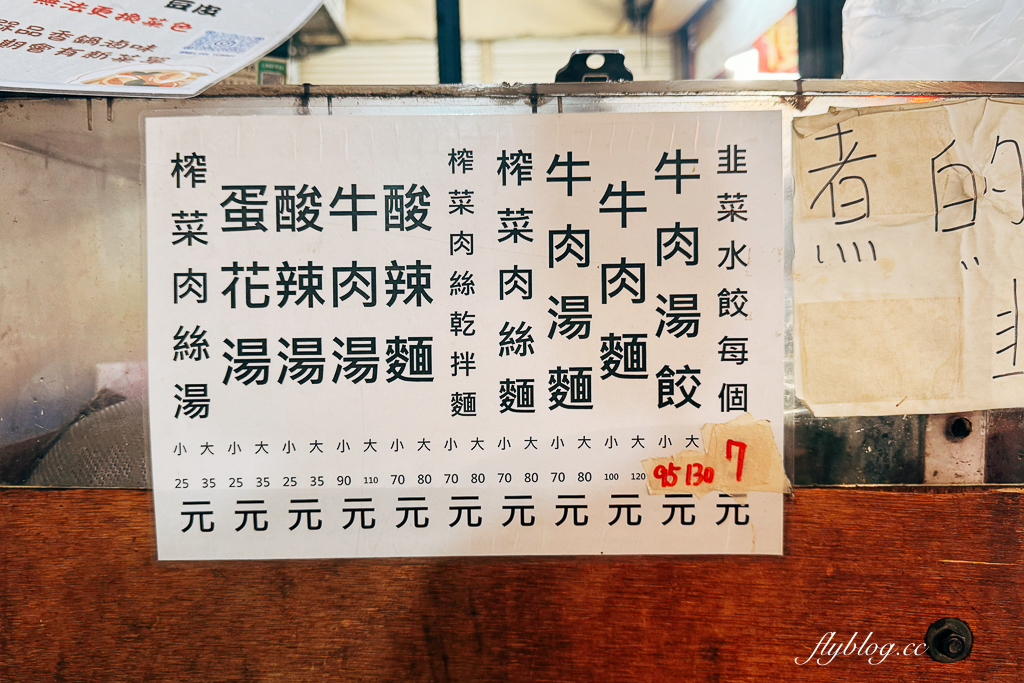 無法更換菜色
品香鍋滷味
期會有新菜單
韭菜水餃每個
牛肉湯餃
牛肉麵
牛肉湯麵
榨菜肉絲麵
榨菜肉絲乾拌麵
酸辣麵
牛肉湯
酸辣湯
蛋花湯
榨菜肉絲湯
小 大 小 大 小 大 小 大 小 大 小 大 小 大 小 大 小 大 小 大
25 35 25 35 25 35 90 110 70 80 70 80 70 80 70 80 100 120 95 130 7
元 元 元 元 元 元 元 元 元 元 元
煮 的
flyblog.cc